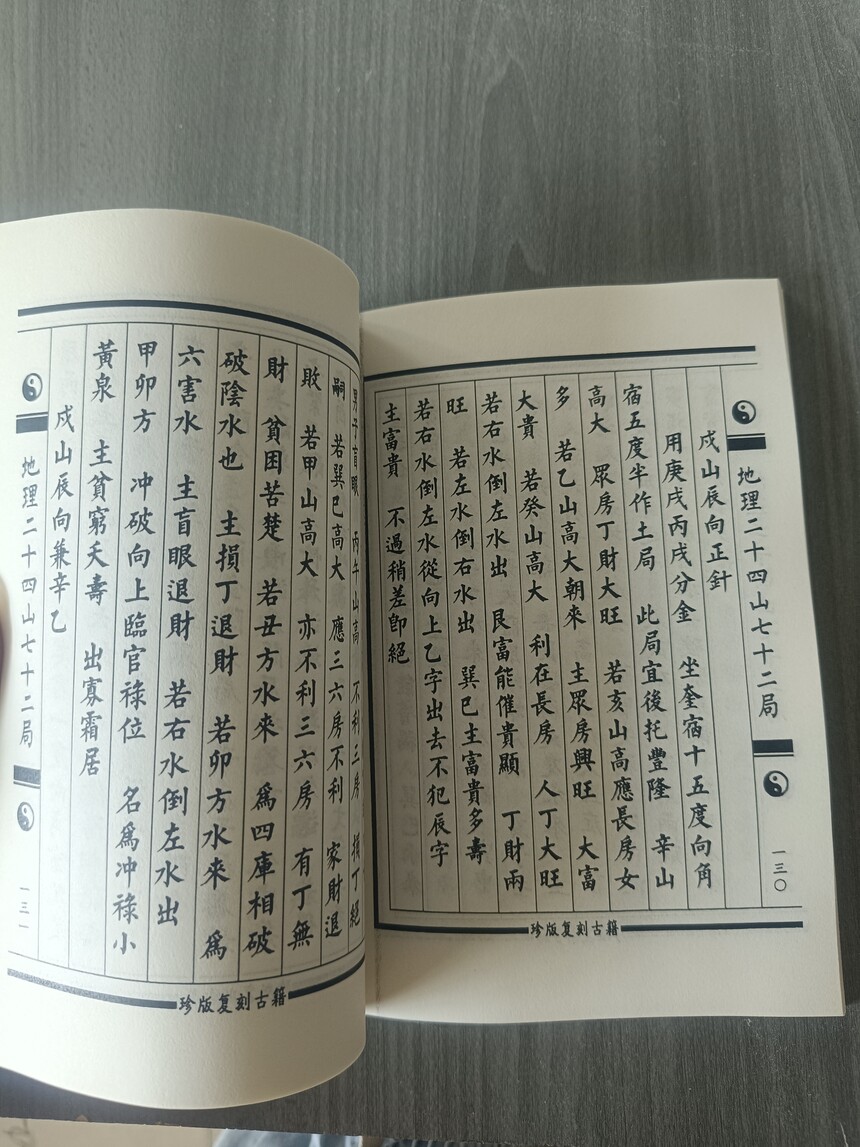 地理二十四山七十二局
一三〇
戍山辰向正針
用庚戌丙戌分金 坐奎宿十五度向角
宿五度半作土局 此局宜後托豐隆 辛山
高大 眾房丁財大旺 若亥山高應長房女
多 若乙山高大朝來 主眾房興旺 大富
大貴 若癸山高大 利在長房 人丁大旺
若右水倒左水出 艮富能催貴顯 丁財兩
旺 若左水倒右水出 巽巳主富貴多壽
若右水倒左水從向上乙字出去不犯辰字
主富貴 不過稍差卽絕
珍版复刻古籍
男子盲眼 丙午山高 不利三房 損丁絕
嗣 若巽巳高大 應三六房不利 家財退
敗 若甲山高大 亦不利三六房 有丁無
財 貧困苦楚 若丑方水來 爲四庫相破
破陰水也 主損丁退財 若卯方水來 爲
六害水 主盲眼退財 若右水倒左水出
甲卯方 冲破向上臨官祿位 名爲冲祿小
黃泉 主貧窮夭壽 出寡霜居
戍山辰向兼辛乙
地理二十四山七十二局
一三一
珍版复刻古籍